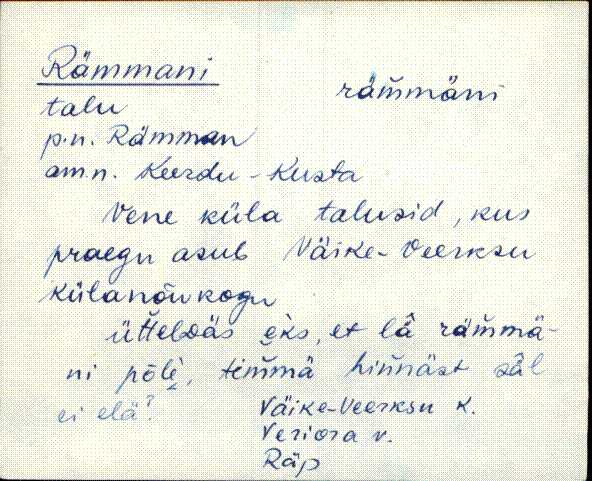 Rämmani
räm̆mäni
talu
p.n. Rämman
am.n. Keerdu-Kusta
Vene küla talusid, kus
praegu asub Väike-Veerksu
külanõukogu
üt̆teldäs eks, et lâ räm̆mä-
ni põlè, tim̆mä hin̆näst säl
ei elä?
Väike-Veerksu k.
Veriora v.
Räp